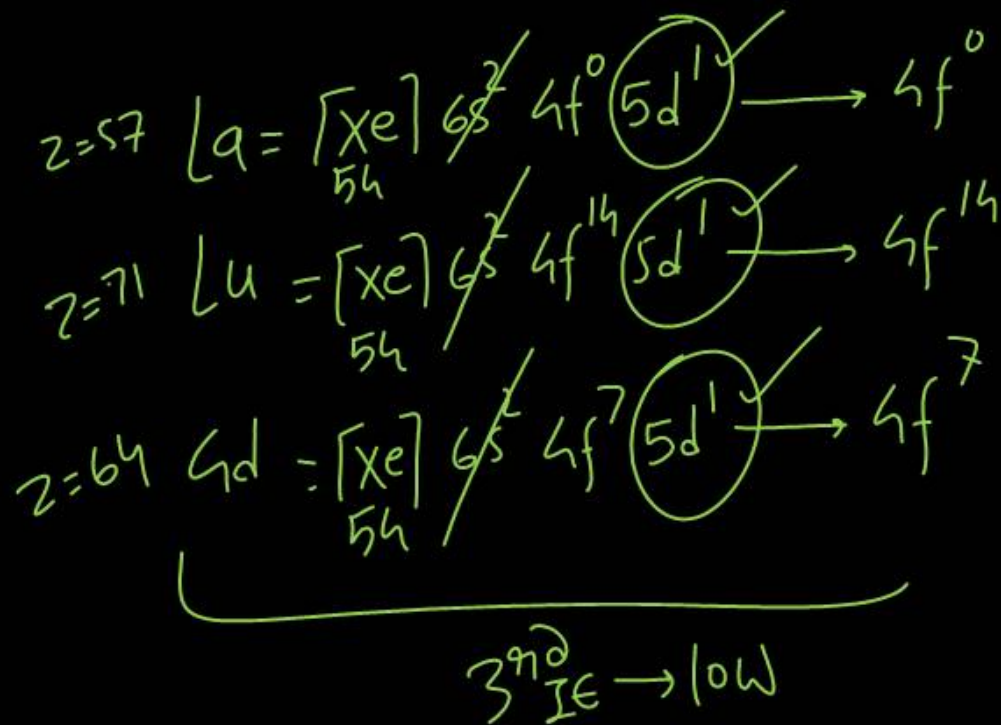 Z=57 La = [Xe] 6s² 4f⁰ 5d¹ → 4f⁰
54
Z=71 Lu = [Xe] 6s² 4f¹⁴ 5d¹ → 4f¹⁴
54
Z=64 Gd = [Xe] 6s² 4f⁷ 5d¹ → 4f⁷
54
3rd IE → low